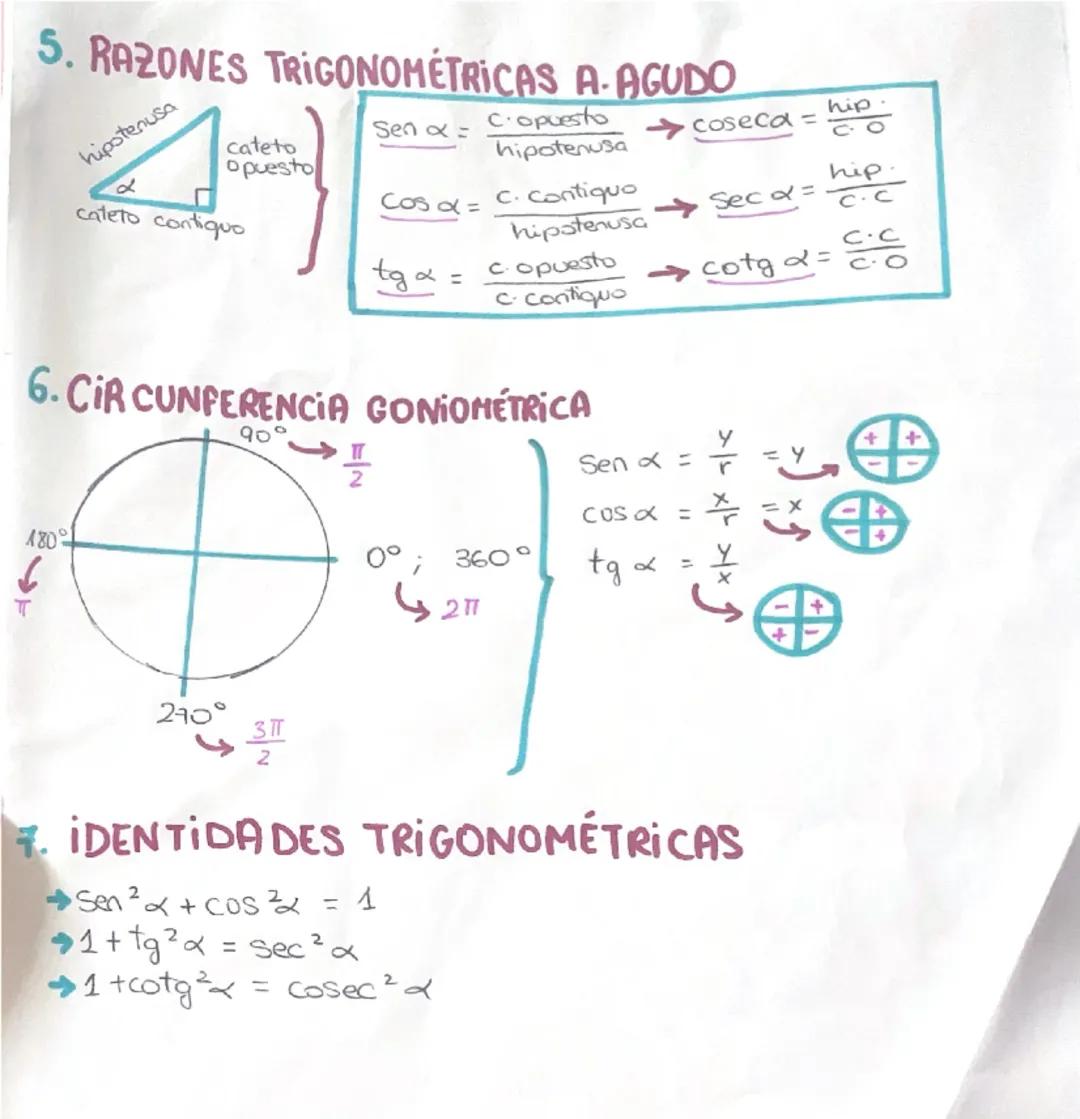 5. RAZONES TRIGONOMÉTRICAS A. AGUDO
hipotenusa
cateto
opuesto
α
cateto contiguo
Sen α = c. opuesto / hipotenusa → cosecα = hip. / c. o
Cos α = c. contiguo / hipotenusa → Sec α = hip. / c.c
tg α = c. opuesto / c. contiguo → cotg α = c.c / c.o
6. CIRCUNFERENCIA GONIOMÉTRICA
90° → π/2
180° → π
0° ; 360° → 2π
270° → 3π/2
Sen α = y/r = y
+ +
- -
cos α = x/r = x
- +
- +
tg α = y/x
- +
+ -
7. IDENTIDADES TRIGONOMÉTRICAS
→ Sen² α + cos² α = 1
→ 1 + tg² α = sec² α
→ 1 + cotg² α = cosec² α